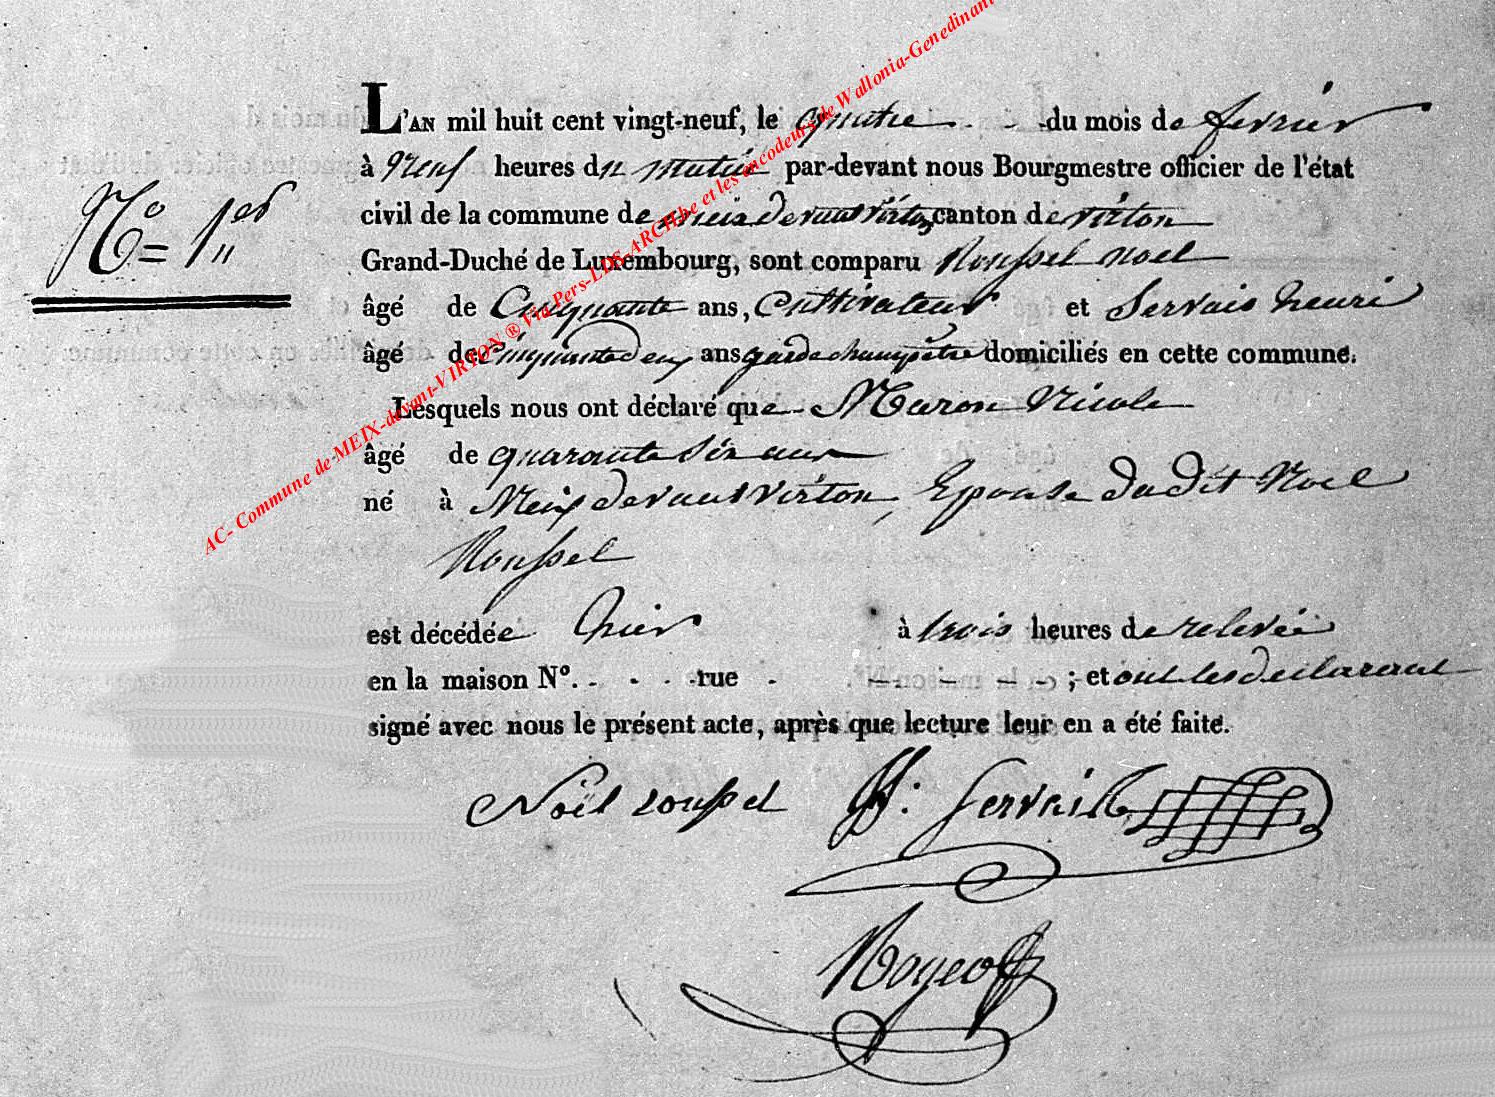 AC- Commune de MEIX-devant-VIRTON ® Via Pers-LDS-ARCH.be et les encodeurs de Wallonia-Genedinant
No = 1er
L'AN mil huit cent vingt-neuf, le quatre du mois de fevrier
à Neuf heures du matin par-devant nous Bourgmestre officier de l'état
civil de la commune de meix devant virton canton de virton
Grand-Duché de Luxembourg, sont comparu Roussel noel
âgé de Cinquante ans, Cultivateur et Servais henri
âgé de Cinquante deux ans garde champêtre domiciliés en cette commune.
Lesquels nous ont déclaré que Maron Nicole
âgé de quarante six ans
né à Meix devant virton, Epouse dudit Noel
Roussel
est décédée hier à trois heures de relevée
en la maison No. rue ; et ont les déclarant
signé avec nous le présent acte, après que lecture leur en a été faite.
Noël roussel H: Servais